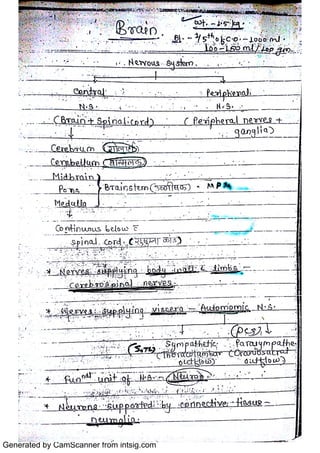 Brain. wt. - 1.5 kg.
Bl. - 1/5th of C.O. - 1000 ml.
Nervous System.
Central Peripheral
N.S. N.S.
(Brain + Spinal cord) (Peripheral nerves +
ganglia)
Cerebrum
Cerebellum
Midbrain
Pons Brainstem
Medulla
Continuous below
spinal cord.
* Nerves supplying body wall & limbs -
cerebrospinal nerves.
* Nerves supplying viscera - Autonomic N.S.
Sympathetic Parasympathe.
(Thoracolumbar (Craniosacral
outflow) outflow)
* Funnal unit of N.S. - Neuron
* Neurons supported by connective tissue -
neuroglia.
Generated by CamScanner from intsig.com